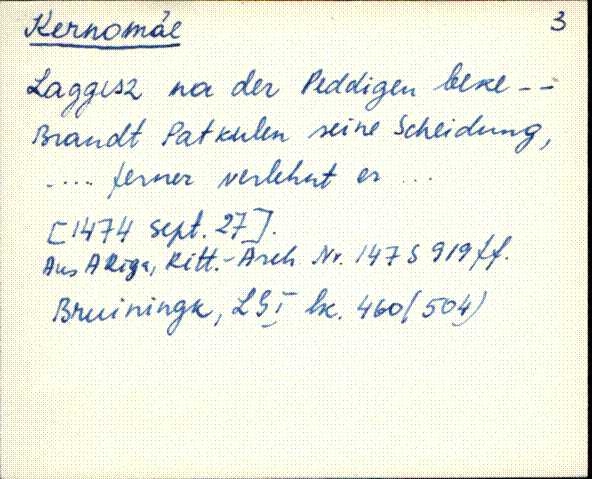 Kernomäe 3
Laggesz na der Peddigen beke --
Brandt Patkulen seine Scheidung,
.... ferner verlehnt er ...
[1474 Sept. 27].
Aus ARiga, Ritt.-Arch Nr. 147 S 919 ff.
Bruiningk, LG I lk. 460 (504)